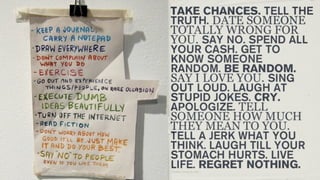 • KEEP A JOURNAL
CARRY A NOTEPAD
• DRAW EVERYWHERE
• DON'T COMPLAIN ABOUT
WHAT YOU DO
- EXERCISE
- GO OUT AND EXPERIENCE
THINGS/PEOPLE, ON RARE OCCASION
• EXECUTE DUMB
IDEAS BEAUTIFULLY
• TURN OFF THE INTERNET
• READ FICTION
• DON'T WORRY ABOUT HOW
GOOD IT'LL BE. JUST MAKE
IT AND DO YOUR BEST.
• SAY NO TO PEOPLE
EVEN IF YOU LIKE THEM
TAKE CHANCES. TELL THE
TRUTH. DATE SOMEONE
TOTALLY WRONG FOR
YOU. SAY NO. SPEND ALL
YOUR CASH. GET TO
KNOW SOMEONE
RANDOM. BE RANDOM.
SAY I LOVE YOU. SING
OUT LOUD. LAUGH AT
STUPID JOKES. CRY.
APOLOGIZE. TELL
SOMEONE HOW MUCH
THEY MEAN TO YOU.
TELL A JERK WHAT YOU
THINK. LAUGH TILL YOUR
STOMACH HURTS. LIVE
LIFE. REGRET NOTHING.